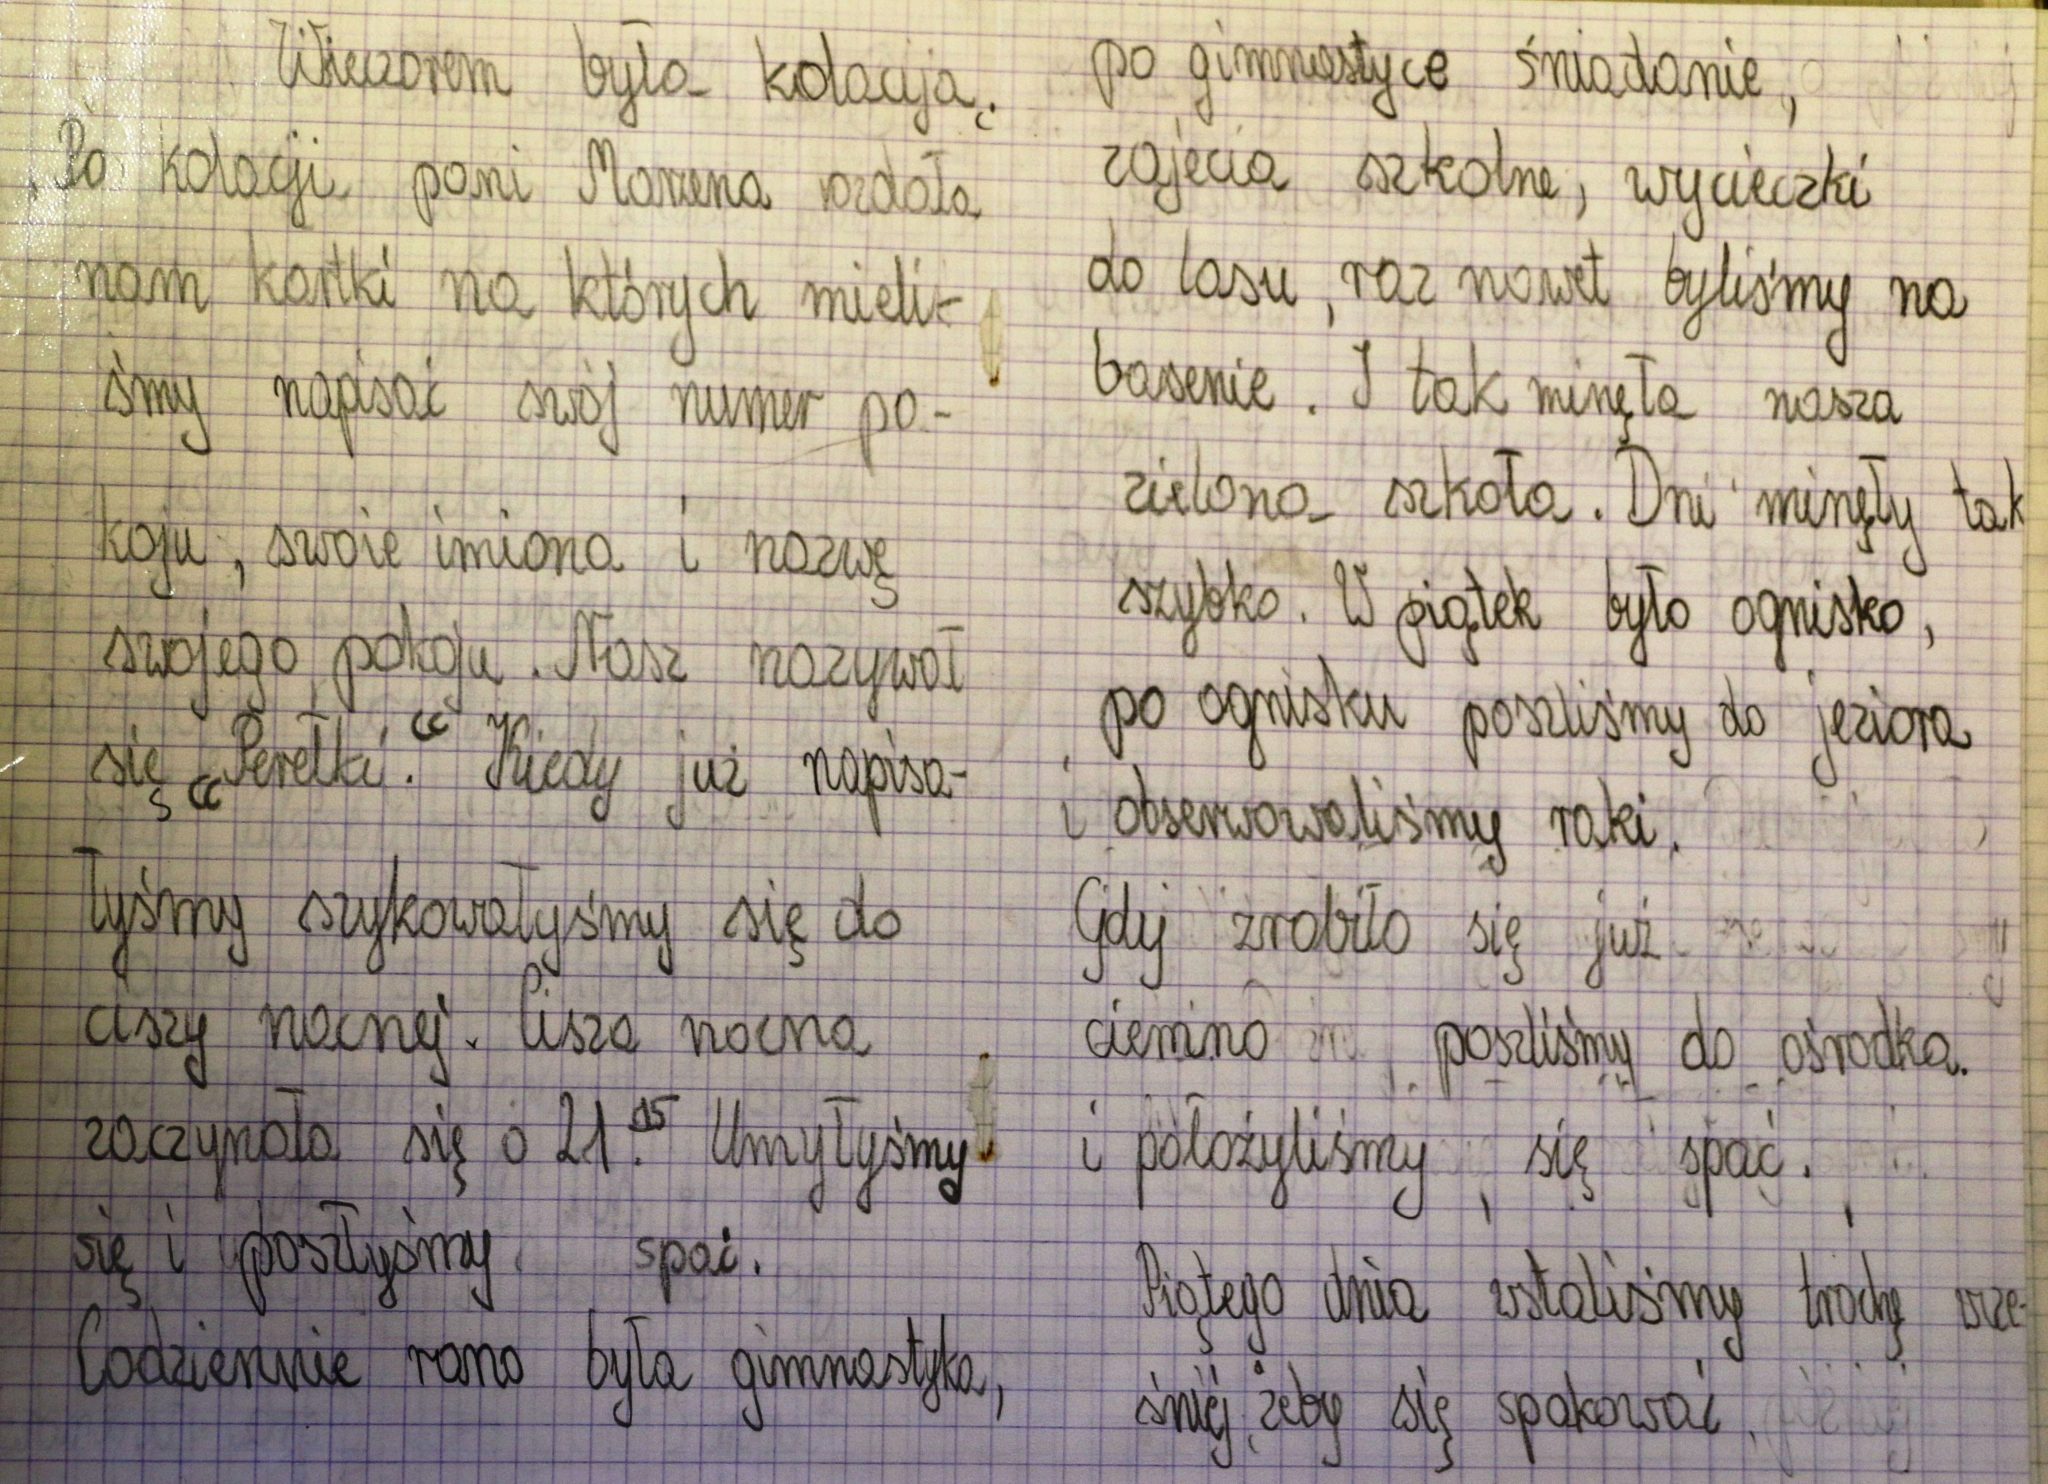 Wieczorem była kolacją.
Po kolacji pani Marzena rozdała
nam kartki na których mieli-
śmy napisać swój numer po-
koju, swoie imiona i nazwę
swojego pokoju. Nasz nazywał
się „Perełki.“ Kiedy już napisa-
łyśmy szykowałyśmy się do
ciszy nocnej. Cisza nocna
zaczynała się o 21.15 Umyłyśmy
się i poszłyśmy spać.
Codziennie rano była gimnastyka,
po gimnastyce śniadanie,
zajęcia szkolne, wycieczki
do lasu, raz nawet byliśmy na
basenie. I tak minęła nasza
zielona szkoła. Dni minęły tak
szybko. W piątek było ognisko,
po ognisku poszliśmy do jeziora
i obserwowaliśmy raki.
Gdy zrobiło się już
ciemno poszliśmy do ośrodka.
i położyliśmy się spać.
Piątego dnia wstaliśmy trochę wcze-
śniej, żeby się spakować